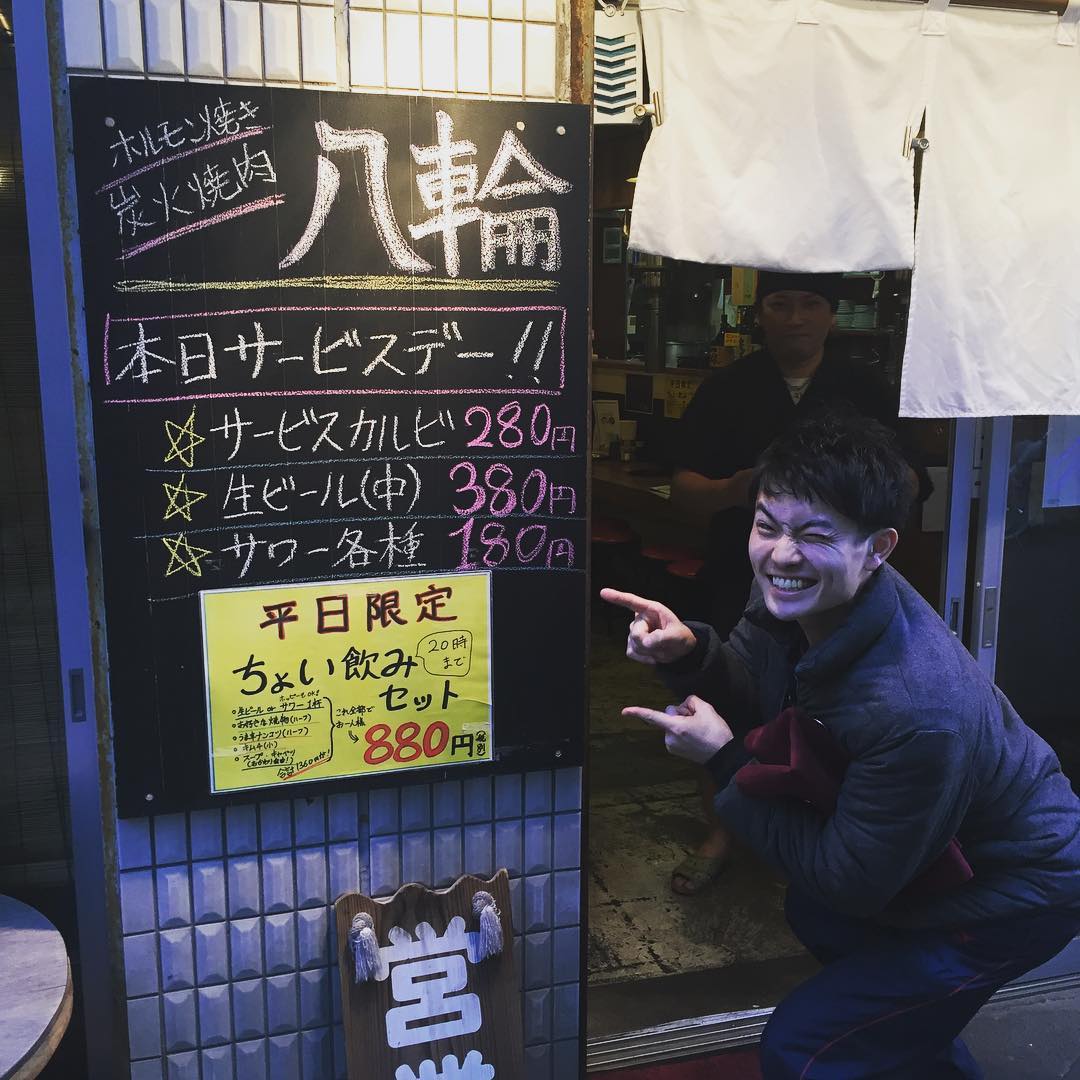 ホルモン焼き
炭火焼肉
八輪
本日サービスデー!!
サービスカルビ 280円
生ビール(中) 380円
サワー各種 180円
平日限定
ちょい飲み
20時
まで
セット
ホッピーもOK!
・生ビール or サワー1杯
・お好きな焼物(ハーフ)
・キムチ(小)
・スープ、キャベツ
(おかわり自由!)
これ全部で
お一人様
880円
税別
営業